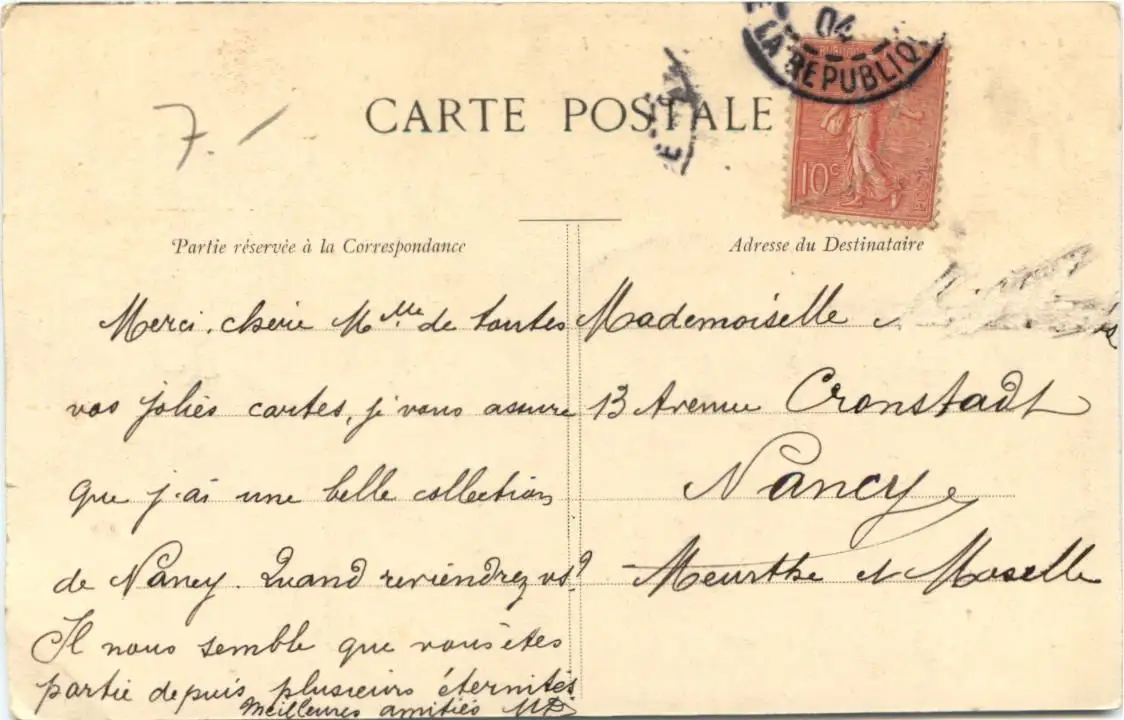 04
LA REPUBLIQUE
7.-
CARTE POSTALE
10c
Partie réservée à la Correspondance
Merci, chérie Mlle de toutes
vos jolies cartes, je vous assure
que j'ai une belle collection
de Nancy. Quand reviendrez vs?
Il nous semble que vous êtes
partie depuis plusieurs éternités
Meilleures amitiés MD
Adresse du Destinataire
Mademoiselle
13 Avenue Cronstadt
Nancy
Meurthe et Moselle